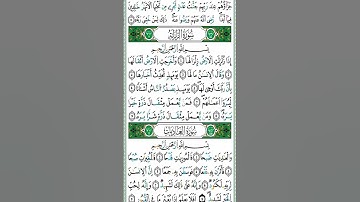 جَزَاؤُهُمْ عِندَ رَبِّهِمْ جَنَّٰتُ عَدْنٍ تَجْرِى مِن تَحْتِهَا ٱلْأَنْهَٰرُ خَٰلِدِينَ
فِيهَآ أَبَدًا رَّضِىَ ٱللَّهُ عَنْهُمْ وَرَضُوا۟ عَنْهُ ذَٰلِكَ لِمَنْ خَشِىَ رَبَّهُۥ
سُورَةُ الزَّلْزَلَةِ
بِسْمِ ٱللَّهِ ٱلرَّحْمَٰنِ ٱلرَّحِيمِ
إِذَا زُلْزِلَتِ ٱلْأَرْضُ زِلْزَالَهَا ١ وَأَخْرَجَتِ ٱلْأَرْضُ أَثْقَالَهَا
٢ وَقَالَ ٱلْإِنسَٰنُ مَا لَهَا ٣ يَوْمَئِذٍ تُحَدِّثُ أَخْبَارَهَا
٤ بِأَنَّ رَبَّكَ أَوْحَىٰ لَهَا ٥ يَوْمَئِذٍ يَصْدُرُ ٱلنَّاسُ أَشْتَاتًا
لِّيُرَوْا۟ أَعْمَٰلَهُمْ ٦ فَمَن يَعْمَلْ مِثْقَالَ ذَرَّةٍ خَيْرًا يَرَهُۥ
٧ وَمَن يَعْمَلْ مِثْقَالَ ذَرَّةٍ شَرًّا يَرَهُۥ ٨
سُورَةُ العَادِيَاتِ
بِسْمِ ٱللَّهِ ٱلرَّحْمَٰنِ ٱلرَّحِيمِ
وَٱلْعَٰدِيَٰتِ ضَبْحًا ١ فَٱلْمُورِيَٰتِ قَدْحًا ٢ فَٱلْمُغِيرَٰتِ صُبْحًا
٣ فَأَثَرْنَ بِهِۦ نَقْعًا ٤ فَوَسَطْنَ بِهِۦ جَمْعًا ٥ إِنَّ ٱلْإِنسَٰنَ
لِرَبِّهِۦ لَكَنُودٌ ٦ وَإِنَّهُۥ عَلَىٰ ذَٰلِكَ لَشَهِيدٌ ٧ وَإِنَّهُۥ لِحُبِّ
ٱلْخَيْرِ لَشَدِيدٌ ٨ أَفَلَا يَعْلَمُ إِذَا بُعْثِرَ مَا فِى ٱلْقُبُورِ